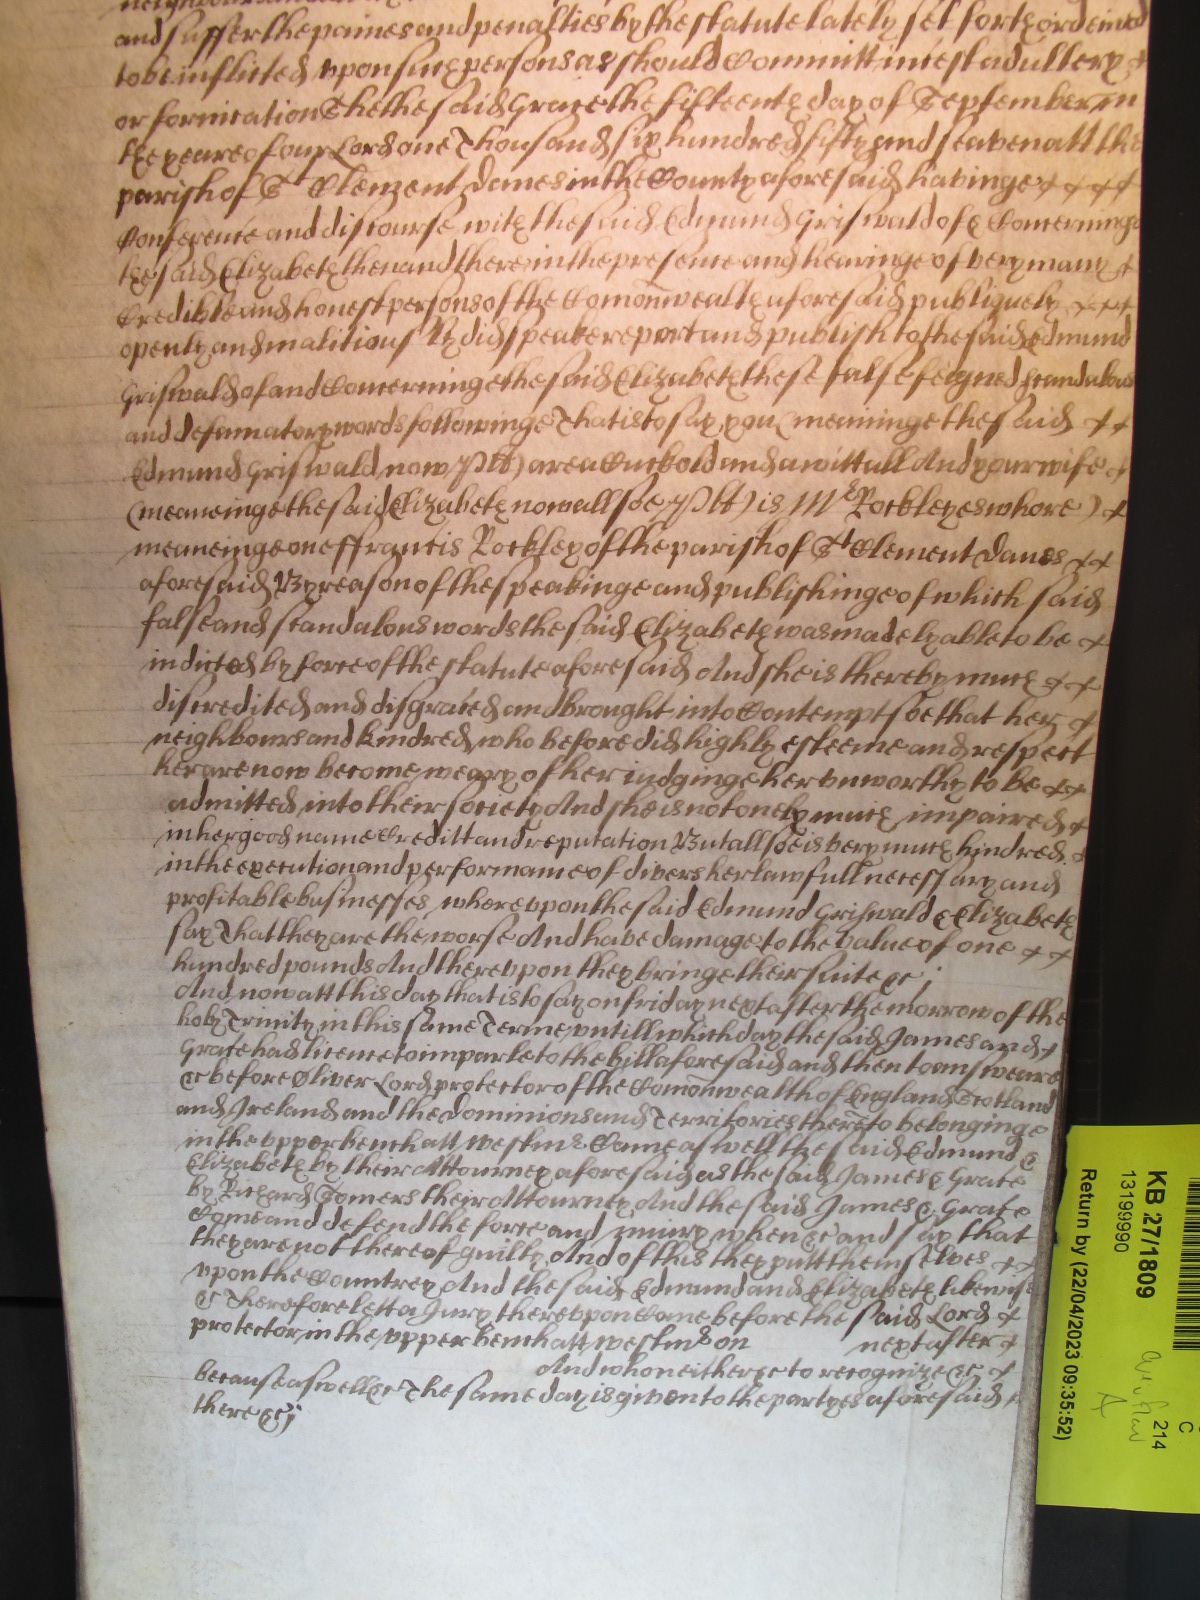 and suffer the paines and penalties by the statute lately set forth ordeined
to be inflicted vpon such persons as should Committ incest adultery
or fornication She the said Grace the fifteenth day of September in
the yeare of our Lord one Thousand six hundred fifty and seaven att the
parish of St Clement Danes in the County aforesaid havinge
Conference and discourse with the said Edmund Griswald of & Concerninge
the said Elizabeth then and there in the presence and hearinge of very many
Credible and honest persons of the Comonwealth aforesaid publiquely
openly and malitiously did speake report and publish to the said Edmund
Griswald of and Concerninge the said Elizabeth these false feigned scandalous
and defamatory words followinge That is to say you (meaninge the said
Edmund Griswald now plt) are a Cuckold and a wittall And your wife
(meaneinge the said Elizabeth now allsoe plt) is Mr Rockleyes whore)
meaneinge one ffrancis Rockley of the parish of St Clement Danes
aforesaid By reason of the speakinge and publishinge of which said
false and scandalous words the said Elizabeth was made lyable to be
indicted by force of the statute aforesaid And she is thereby much
discredited and disgraced and brought into Contempt soe that her
neighbours and kindred who before did highly esteeme and respect
her are now become weary of her iudginge her vnworthy to be
admitted into their society And she is not onely much impaired
in her good name Creditt and reputation But allsoe is very much hindred
in the execution and performance of divers her lawfull necessary and
profitable businesses wherevpon the said Edmund Griswald & Elizabeth
say That they are the worse And have damage to the value of one
hundred pounds And therevpon they bringe their suite &c
And now att this day that is to say on friday next after the morrow of the
holy Trinity in this same Terme vntill which day the said James and
Grace had licence to imparle to the bill aforesaid and then to answeare
&c before Oliver Lord protector of the Comonwealth of England Scotland
and Ireland and the dominions and Territories thereto belonginge
in the vpper bench att Westmr Came as well the said Edmund &
Elizabeth by their Attourney aforesaid as the said James & Grace
by Richard Somers their Attourney And the said James & Grace
Come and defend the force and iniury when &c and say that
they are not thereof guilty And of this they putt themselves
vpon the Countrey And the said Edmund and Elizabeth likewise
&c Therefore lett a Jury therevpon Come before the said Lord
protector in the vpper bench att Westmr on next after
And who neither &c to recognize &c
because as well &c The same day is given to the partyes aforesaid
there &c
KB 27/1809
13199990
Return by (22/04/2023 09:35:52)
C
214
A